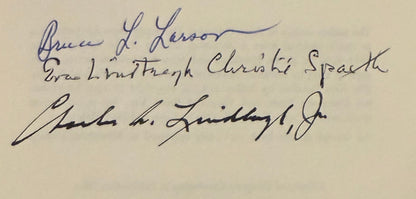 Bruce L. Larson
Eva Lindbergh Christie Spaeth
Charles A. Lindbergh, Jr